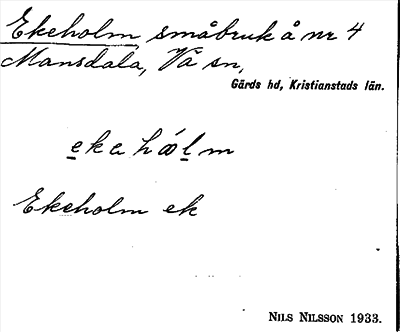 Ekeholm, småbruk å nr 4
Mansdala, Vä sn,
Gärds hd, Kristianstads län.
ekahólm
Ekeholm ek
NILS NILSSON 1933.